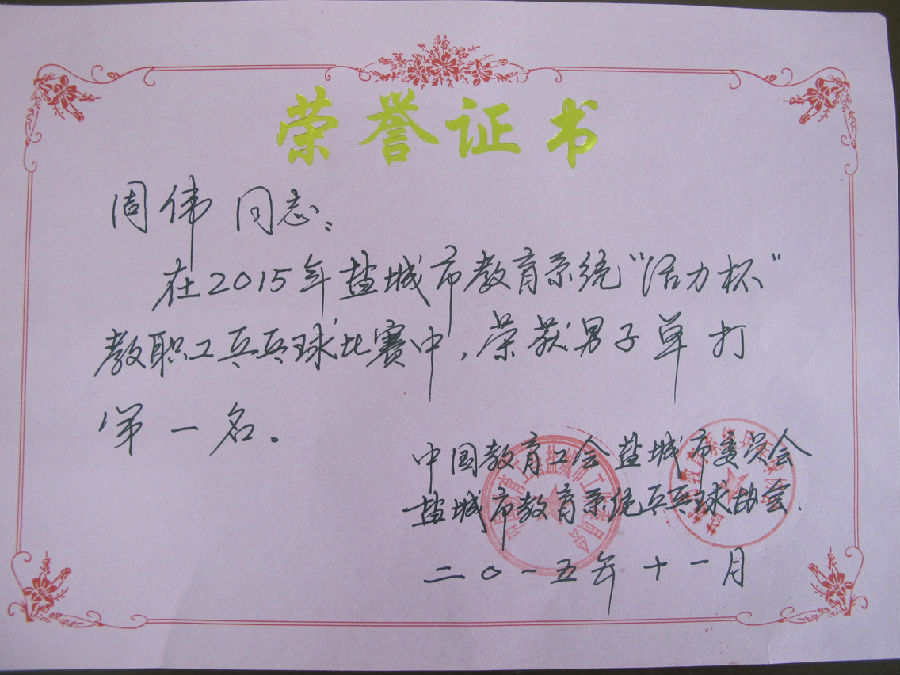 荣誉证书
周伟 同志：
在2015年盐城市教育系统“活力杯”
教职工乒乓球比赛中，荣获男子单打
第一名。
中国教育工会盐城市委员会
盐城市教育系统乒乓球协会
二〇一五年十一月